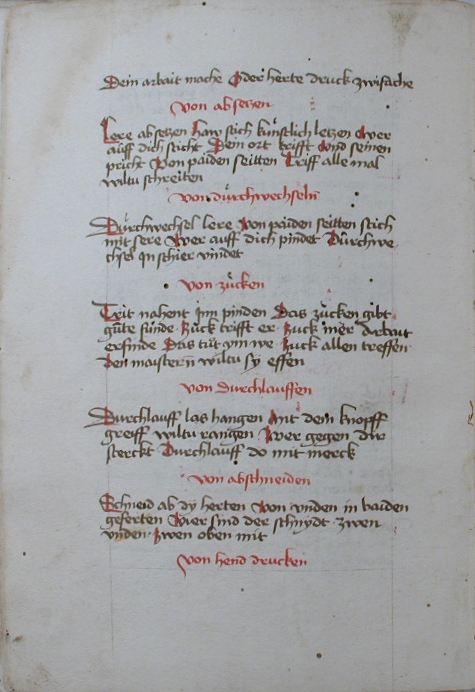 Dein arbait mache Oder herte druck zwifache
Von absetzen
Lere absetzen haw stich künstlich letzen Wer
auff dich sticht Dein ort trifft Vnd seinen
pricht Von paiden seitten Triff alle mal
wiltu schreiten
Von dürchwechseln
Dürchwechsel lere Von paiden seitten stich
mit sere Wer auff dich pindet Dürchwe
chsel in schier vindet
Von zücken
Trit nahent Im pinden Das zücken gibt
güte fünde Zuck trifft er Zuck mer Arbait
erfinde Das tüt ym we Zuck allen treffen
Den maistern wiltu sy effen
Von Durchlauffen
Durchlauff las hangen Mit dem knopff
greiff wiltu rangen Wer gegen dir
sterckt Durchlauff do mit merck
Von abschneiden
Schneid ab dy herten Von vnden in baiden
geferten Vier sind der schnydt zwen
vnden Zwen oben mit
Von hend drucken